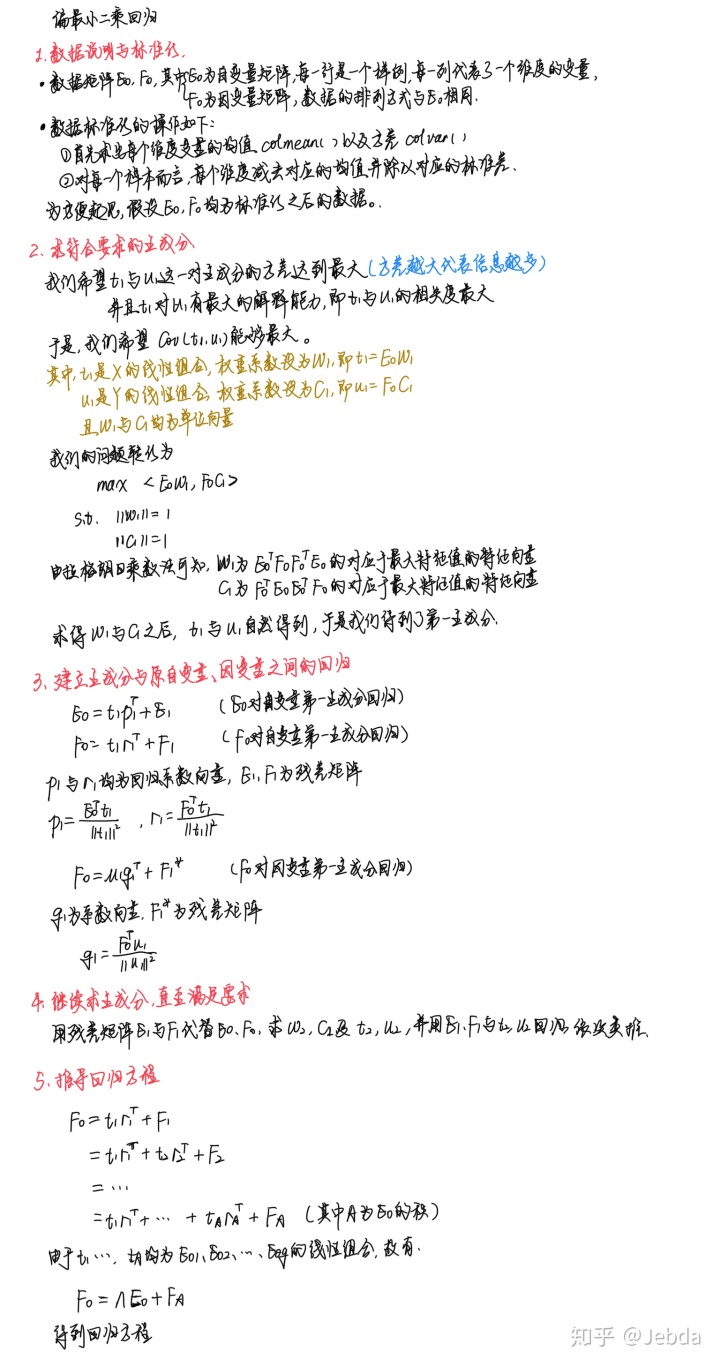 偏最小二乘回归
1. 数据说明与标准化.
· 数据矩阵E₀, F₀, 其中E₀为自变量矩阵, 每一行是一个样例, 每一列代表了一个维度的变量,
F₀为因变量矩阵, 数据的排列方式与E₀相同.
· 数据标准化的操作如下:
①首先求出每个维度变量的均值 colmean( ) 以及方差 colvar( )
②对每一个样本而言, 每个维度减去对应的均值并除以对应的标准差.
为方便起见, 假设E₀, F₀均为标准化之后的数据。
2. 求符合要求的主成分
我们希望t₁与u₁这一对主成分的方差达到最大(方差越大代表信息越多)
并且t₁对u₁有最大的解释能力, 即t₁与u₁的相关度最大
于是, 我们希望 Cov(t₁,u₁)能够最大。
其中, t₁是X的线性组合, 权重系数设为W₁, 即t₁=E₀W₁
u₁是Y的线性组合, 权重系数设为C₁, 即u₁=F₀C₁
且W₁与C₁均为单位向量
我们的问题转化为
max <E₀W₁, F₀C₁>
s.t. ||W₁||=1
||C₁||=1
由拉格朗日乘数法可知, W₁为 E₀ᵀF₀F₀ᵀE₀的对应于最大特征值的特征向量
C₁为 F₀ᵀE₀E₀ᵀF₀的对应于最大特征值的特征向量
求得W₁与C₁之后, t₁与u₁自然得到, 于是我们得到了第一主成分.
3. 建立主成分与原自变量、因变量之间的回归
E₀=t₁p₁ᵀ+E₁ (E₀对自变量第一主成分回归)
F₀=t₁r₁ᵀ+F₁ (F₀对自变量第一主成分回归)
p₁与r₁均为回归系数向量, E₁,F₁为残差矩阵
p₁=E₀ᵀt₁/||t₁||² , r₁=F₀ᵀt₁/||t₁||²
F₀=u₁q₁ᵀ+F₁* (F₀对因变量第一主成分回归)
q₁为系数向量, F₁*为残差矩阵
q₁=F₀ᵀu₁/||u₁||²
4. 继续求主成分, 直至满足要求
用残差矩阵E₁与F₁代替E₀、F₀, 求w₂, C₂及 t₂, u₂, 并用E₁、F₁与t₂、u₂回归, 依次类推.
5. 推导回归方程
F₀=t₁r₁ᵀ+F₁
=t₁r₁ᵀ+t₂r₂ᵀ+F₂
=…
=t₁r₁ᵀ+…+t_Ar_Aᵀ+F_A (其中A为E₀的秩)
由于t₁…, t_A均为E₀₁、E₀₂、…、E₀q的线性组合, 故有.
F₀=ΛE₀+F_A
得到回归方程
知乎 @Jebda